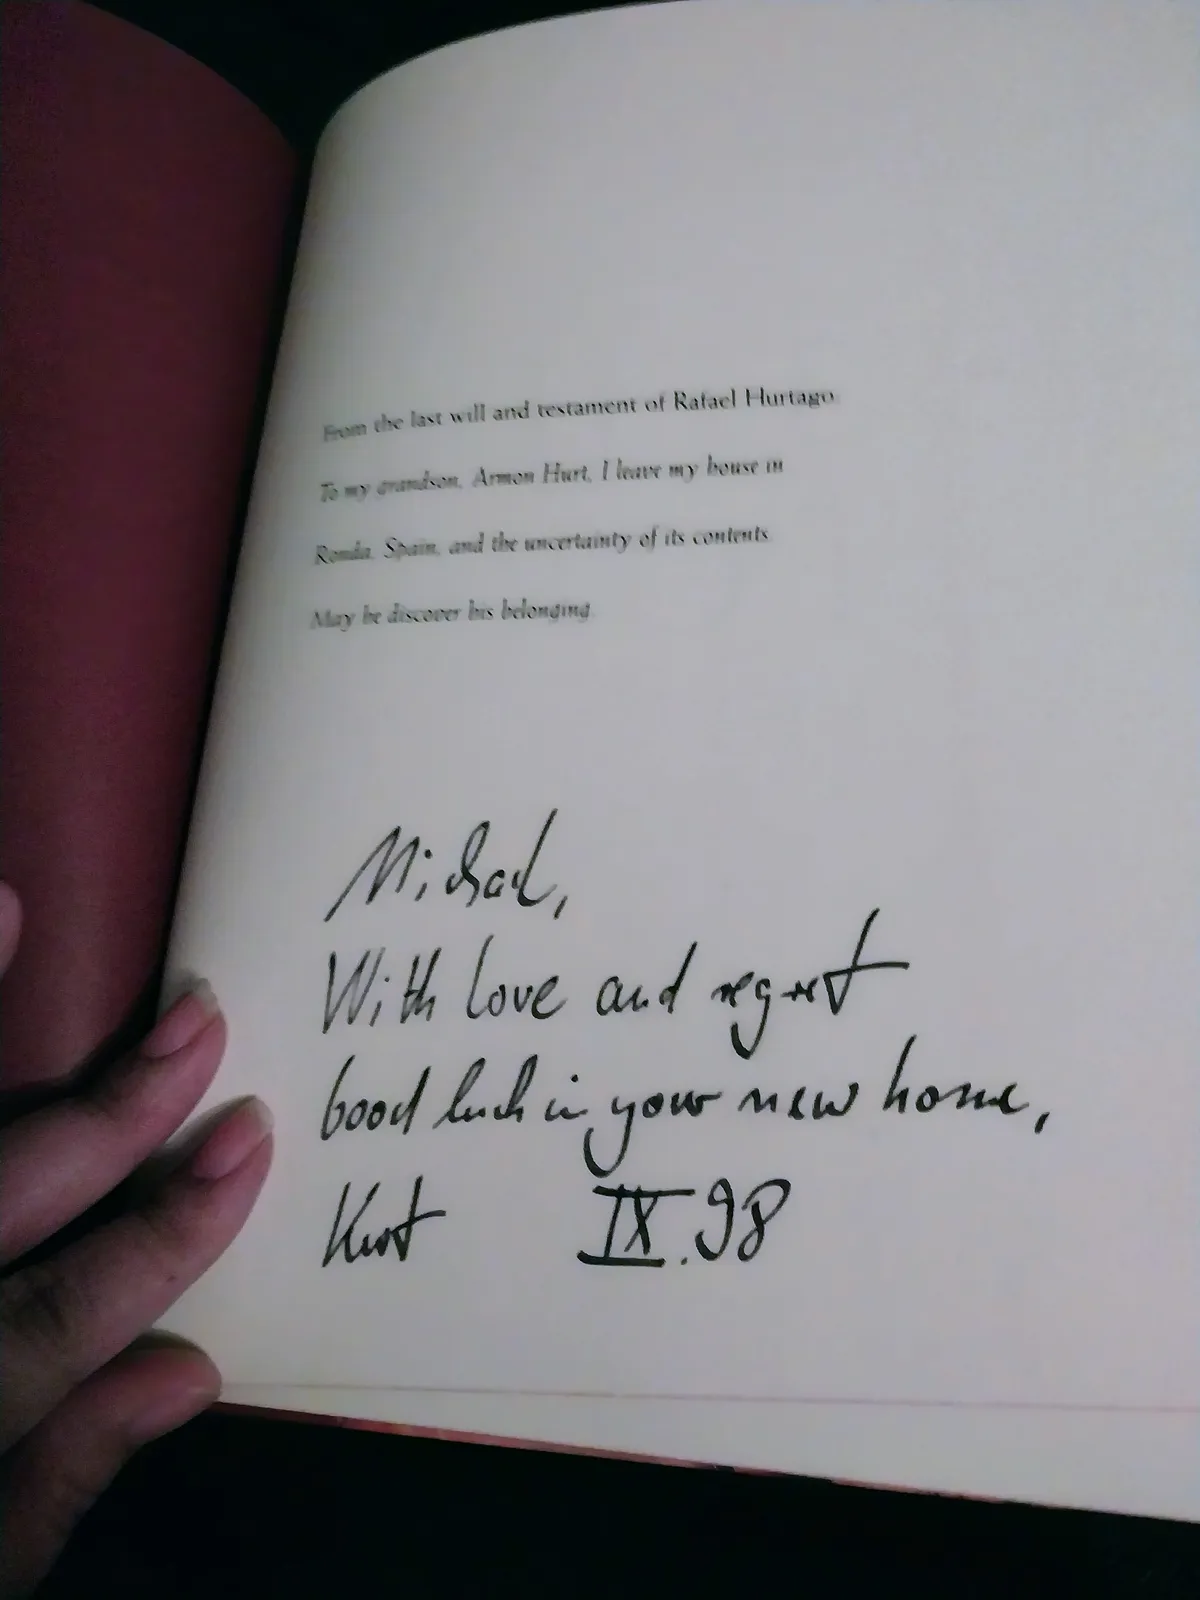 From the last will and testament of Rafael Hurtago
To my grandson, Armon Hurt, I leave my house in
Ronda, Spain, and the uncertainty of its contents.
May he discover his belonging.
Michael,
With love and regret
Good luck in your new home,
Kurt IX.98